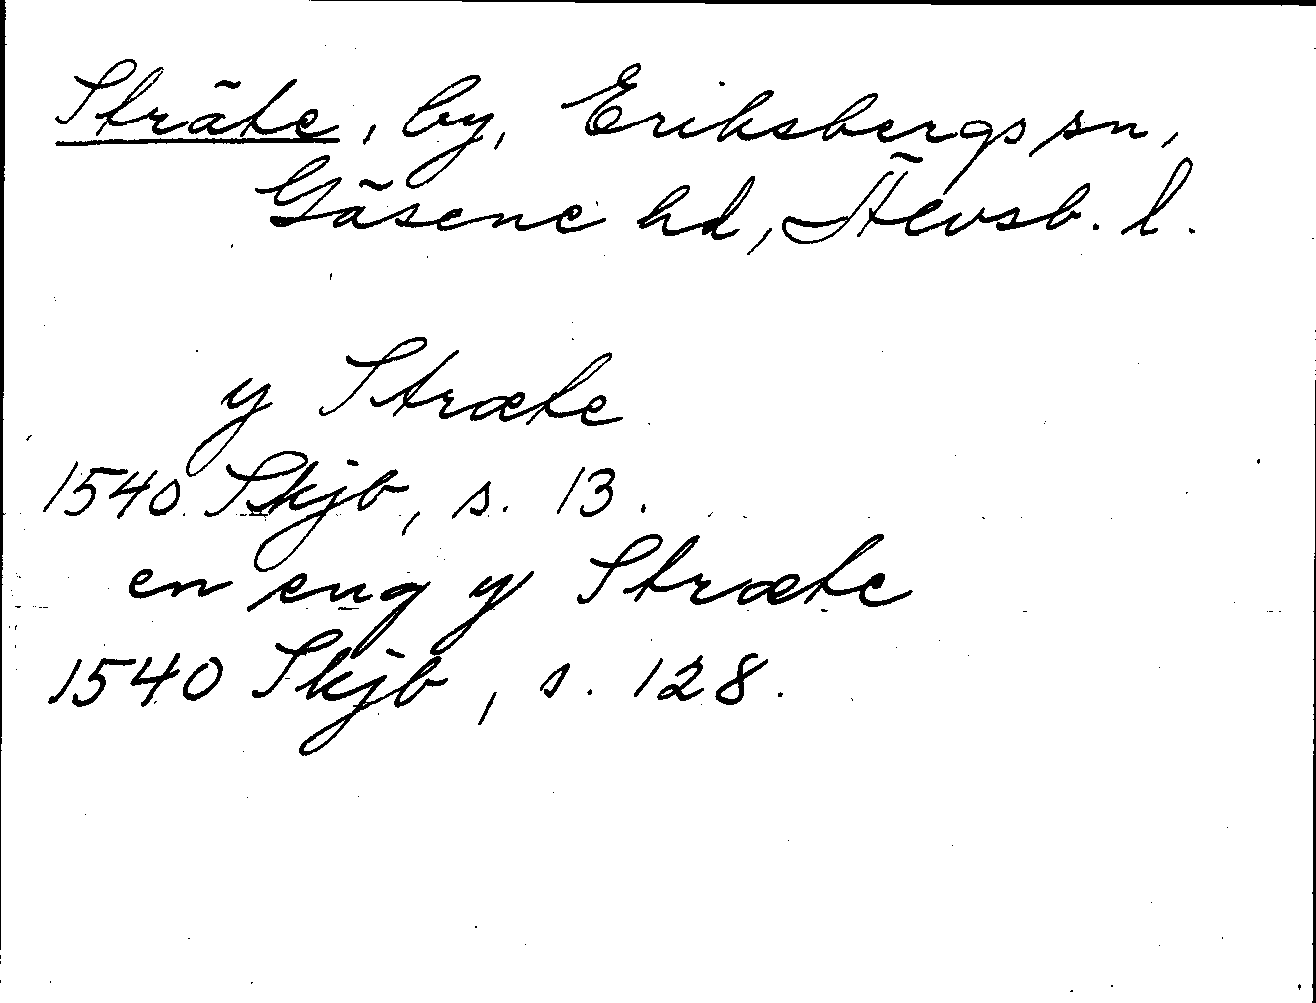 Sträte, by, Eriksbergs sn,
Gäsene hd, Älvsb. l.
y Stræte
1540 Skjb, s. 13.
en eng y Stræte
1540 Skjb, s. 128.